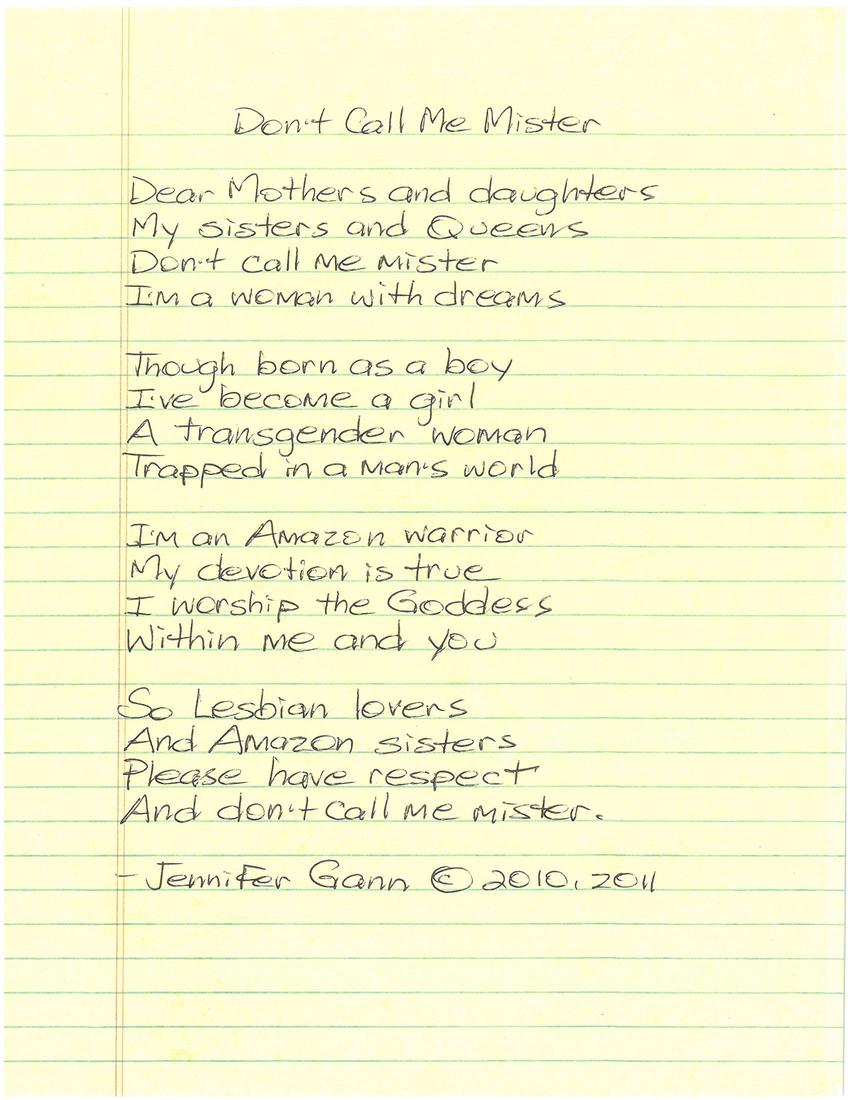 Don't Call Me Mister
Dear Mothers and daughters
My sisters and Queens
Don't call me mister
I'm a woman with dreams
Though born as a boy
I've become a girl
A transgender woman
Trapped in a man's world
I'm an Amazon warrior
My devotion is true
I worship the Goddess
Within me and you
So Lesbian lovers
And Amazon sisters
Please have respect
And don't call me mister.
- Jennifer Gann © 2010, 2011